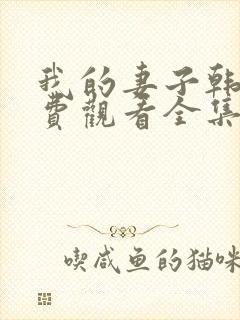 我的妻子韩
费觀看全集
喫咸鱼的猫咪